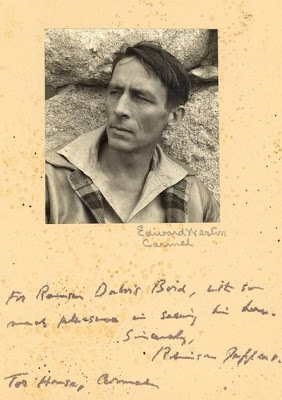 Edward Weston
Carmel
For Dabois Boid, with so
much pleasure in seeing him here.
Sincerely,
Robinson Jeffers.
Tor House, Carmel